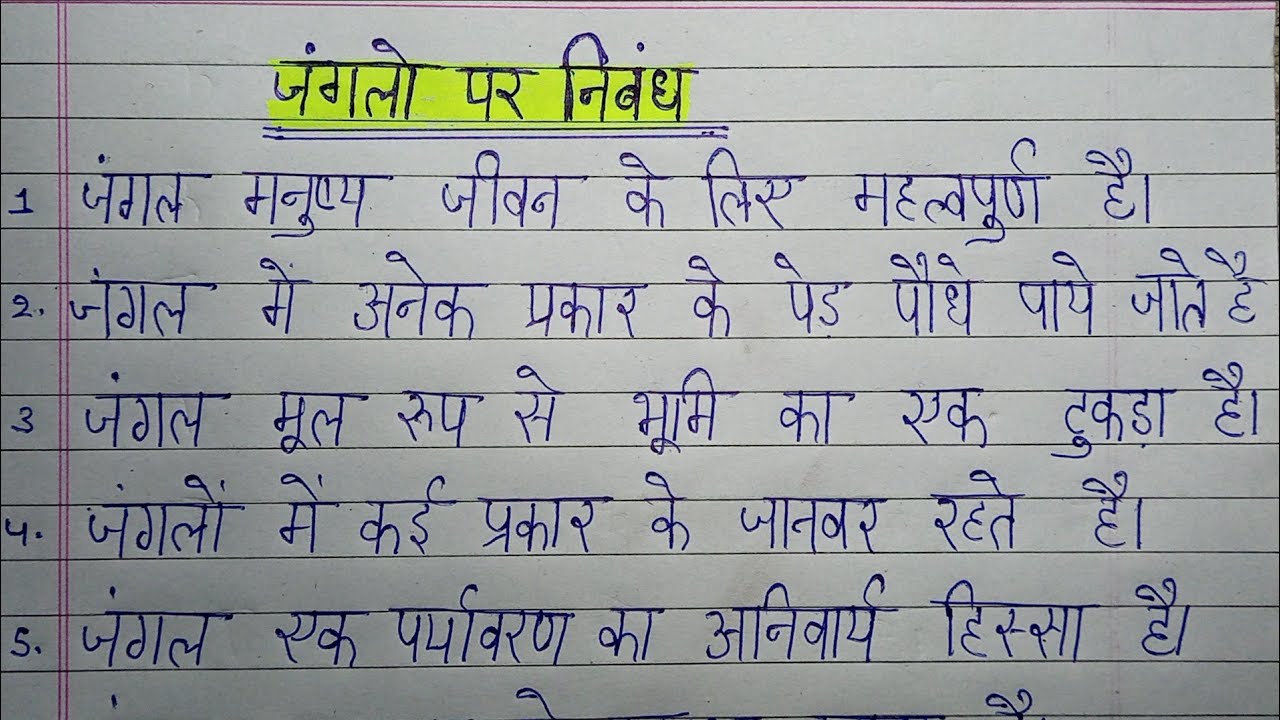 जंगलो पर निबंध
1 जंगल मनुष्य जीवन के लिए महत्वपूर्ण है।
2. जंगल में अनेक प्रकार के पेड़ पौधे पाये जाते है
3 जंगल मूल रूप से भूमि का एक टुकड़ा है।
4. जंगलों में कई प्रकार के जानवर रहते है।
5. जंगल एक पर्यावरण का अनिवार्य हिस्सा है।